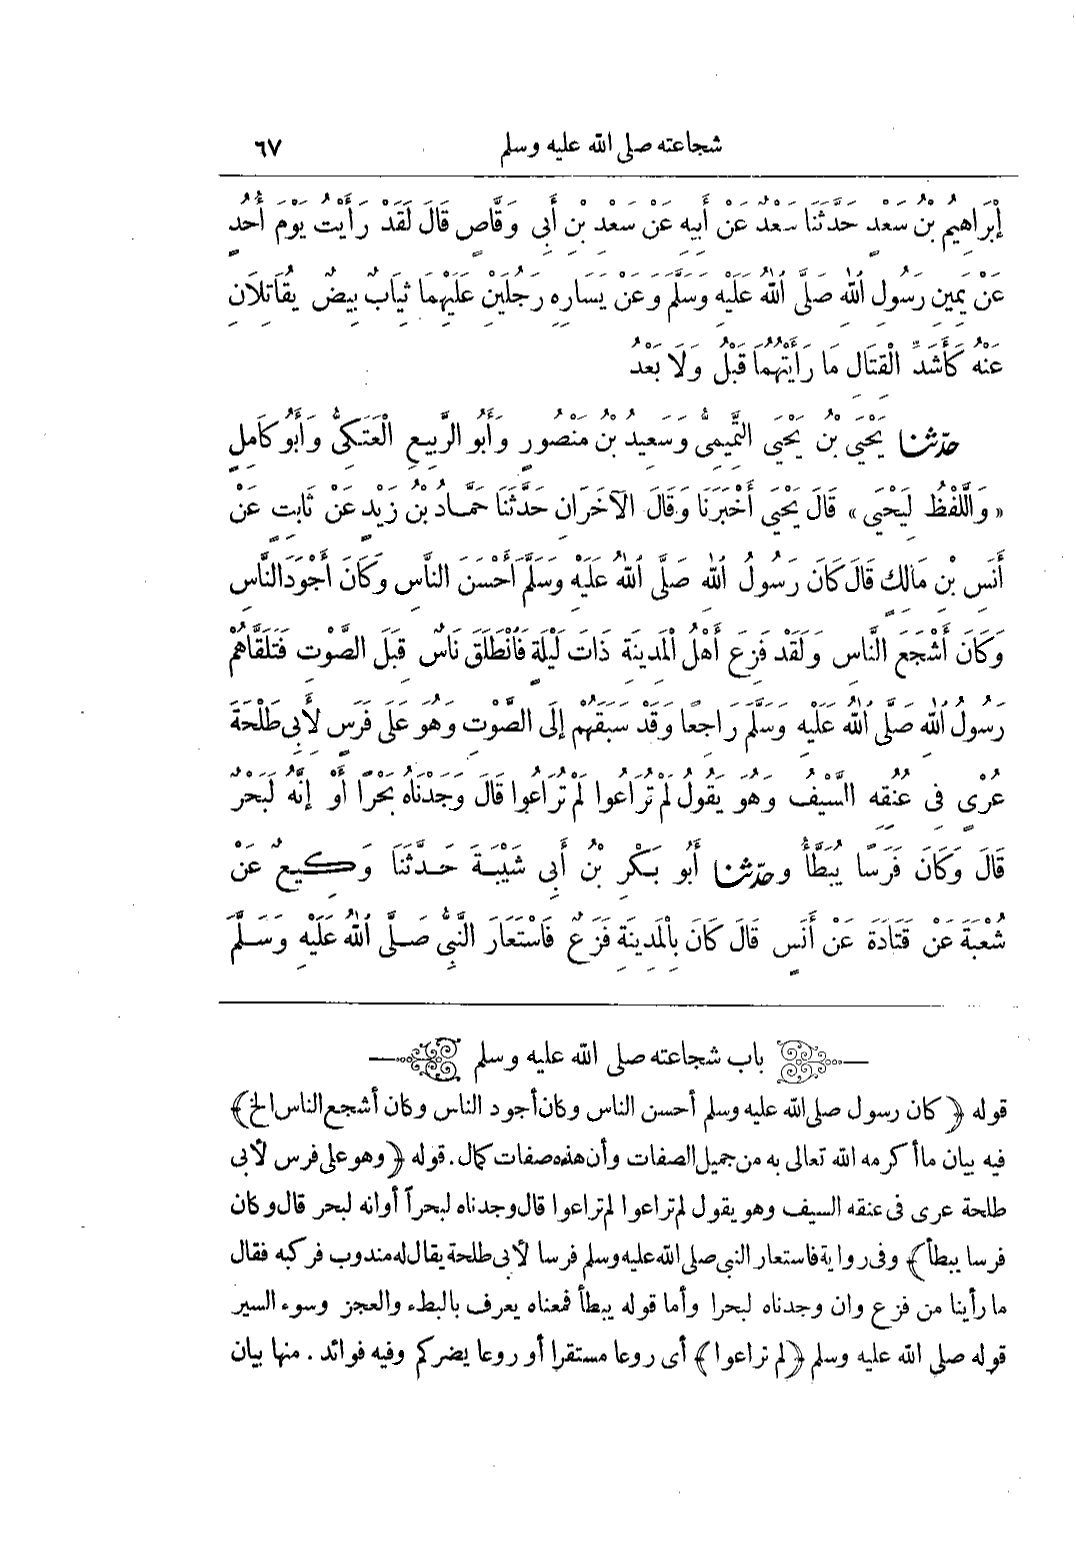 شجاعته صلى الله عليه وسلم ٦٧
إِبْرَاهِيمُ بْنُ سَعْدٍ حَدَّثَنَا سَعْدٌ عَنْ أَبِيهِ عَنْ سَعْدِ بْنِ أَبِى وَقَّاصٍ قَالَ لَقَدْ رَأَيْتُ يَوْمَ أُحُدٍ
عَنْ يَمِينِ رَسُولِ اللهِ صَلَّى اللهُ عَلَيْهِ وَسَلَّمَ وَعَنْ يَسَارِهِ رَجُلَيْنِ عَلَيْهِمَا ثِيَابٌ بِيضٌ يُقَاتِلَانِ
عَنْهُ كَأَشَدِّ الْقِتَالِ مَا رَأَيْتُهُمَا قَبْلُ وَلَا بَعْدُ
حدّثنا يَحْيَى بْنُ يَحْيَى التَّمِيمِىُّ وَسَعِيدُ بْنُ مَنْصُورٍ وَأَبُو الرَّبِيعِ الْعَتَكِىُّ وَأَبُو كَامِلٍ
« وَاللَّفْظُ لِيَحْيَى » قَالَ يَحْيَى أَخْبَرَنَا وَقَالَ الْآخَرَانِ حَدَّثَنَا حَمَّادُ بْنُ زَيْدٍ عَنْ ثَابِتٍ عَنْ
أَنَسِ بْنِ مَالِكٍ قَالَ كَانَ رَسُولُ اللهِ صَلَّى اللهُ عَلَيْهِ وَسَلَّمَ أَحْسَنَ النَّاسِ وَكَانَ أَجْوَدَ النَّاسِ
وَكَانَ أَشْجَعَ النَّاسِ وَلَقَدْ فَزِعَ أَهْلُ الْمَدِينَةِ ذَاتَ لَيْلَةٍ فَانْطَلَقَ نَاسٌ قِبَلَ الصَّوْتِ فَتَلَقَّاهُمْ
رَسُولُ اللهِ صَلَّى اللهُ عَلَيْهِ وَسَلَّمَ رَاجِعًا وَقَدْ سَبَقَهُمْ إِلَى الصَّوْتِ وَهُوَ عَلَى فَرَسٍ لِأَبِى طَلْحَةَ
عُرْىٍ فِى عُنُقِهِ السَّيْفُ وَهُوَ يَقُولُ لَمْ تُرَاعُوا لَمْ تُرَاعُوا قَالَ وَجَدْنَاهُ بَحْرًا أَوْ إِنَّهُ لَبَحْرٌ
قَالَ وَكَانَ فَرَسًا يُبَطَّأُ وحدّثنا أَبُو بَكْرِ بْنُ أَبِى شَيْبَةَ حَدَّثَنَا وَكِيعٌ عَنْ
شُعْبَةَ عَنْ قَتَادَةَ عَنْ أَنَسٍ قَالَ كَانَ بِالْمَدِينَةِ فَزَعٌ فَاسْتَعَارَ النَّبِىُّ صَلَّى اللهُ عَلَيْهِ وَسَلَّمَ
باب شجاعته صلى الله عليه وسلم
قوله ﴿ كان رسول صلى الله عليه وسلم أحسن الناس وكان أجود الناس وكان أشجع الناس الخ ﴾
فيه بيان ما أكرمه الله تعالى به من جميل الصفات وأن هذه صفات كمال . قوله ﴿ وهو على فرس لأبى
طلحة عرى فى عنقه السيف وهو يقول لم تراعوا لم تراعوا قال وجدناه لبحراً أو انه لبحر قال وكان
فرسا يبطأ ﴾ وفى رواية فاستعار النبى صلى الله عليه وسلم فرسا لأبى طلحة يقال له مندوب فركبه فقال
ما رأينا من فزع وان وجدناه لبحرا وأما قوله يبطأ فمعناه يعرف بالبطء والعجز وسوء السير
قوله صلى الله عليه وسلم ﴿ لم تراعوا ﴾ أى روعا مستقرا أو روعا يضركم وفيه فوائد . منها بيان